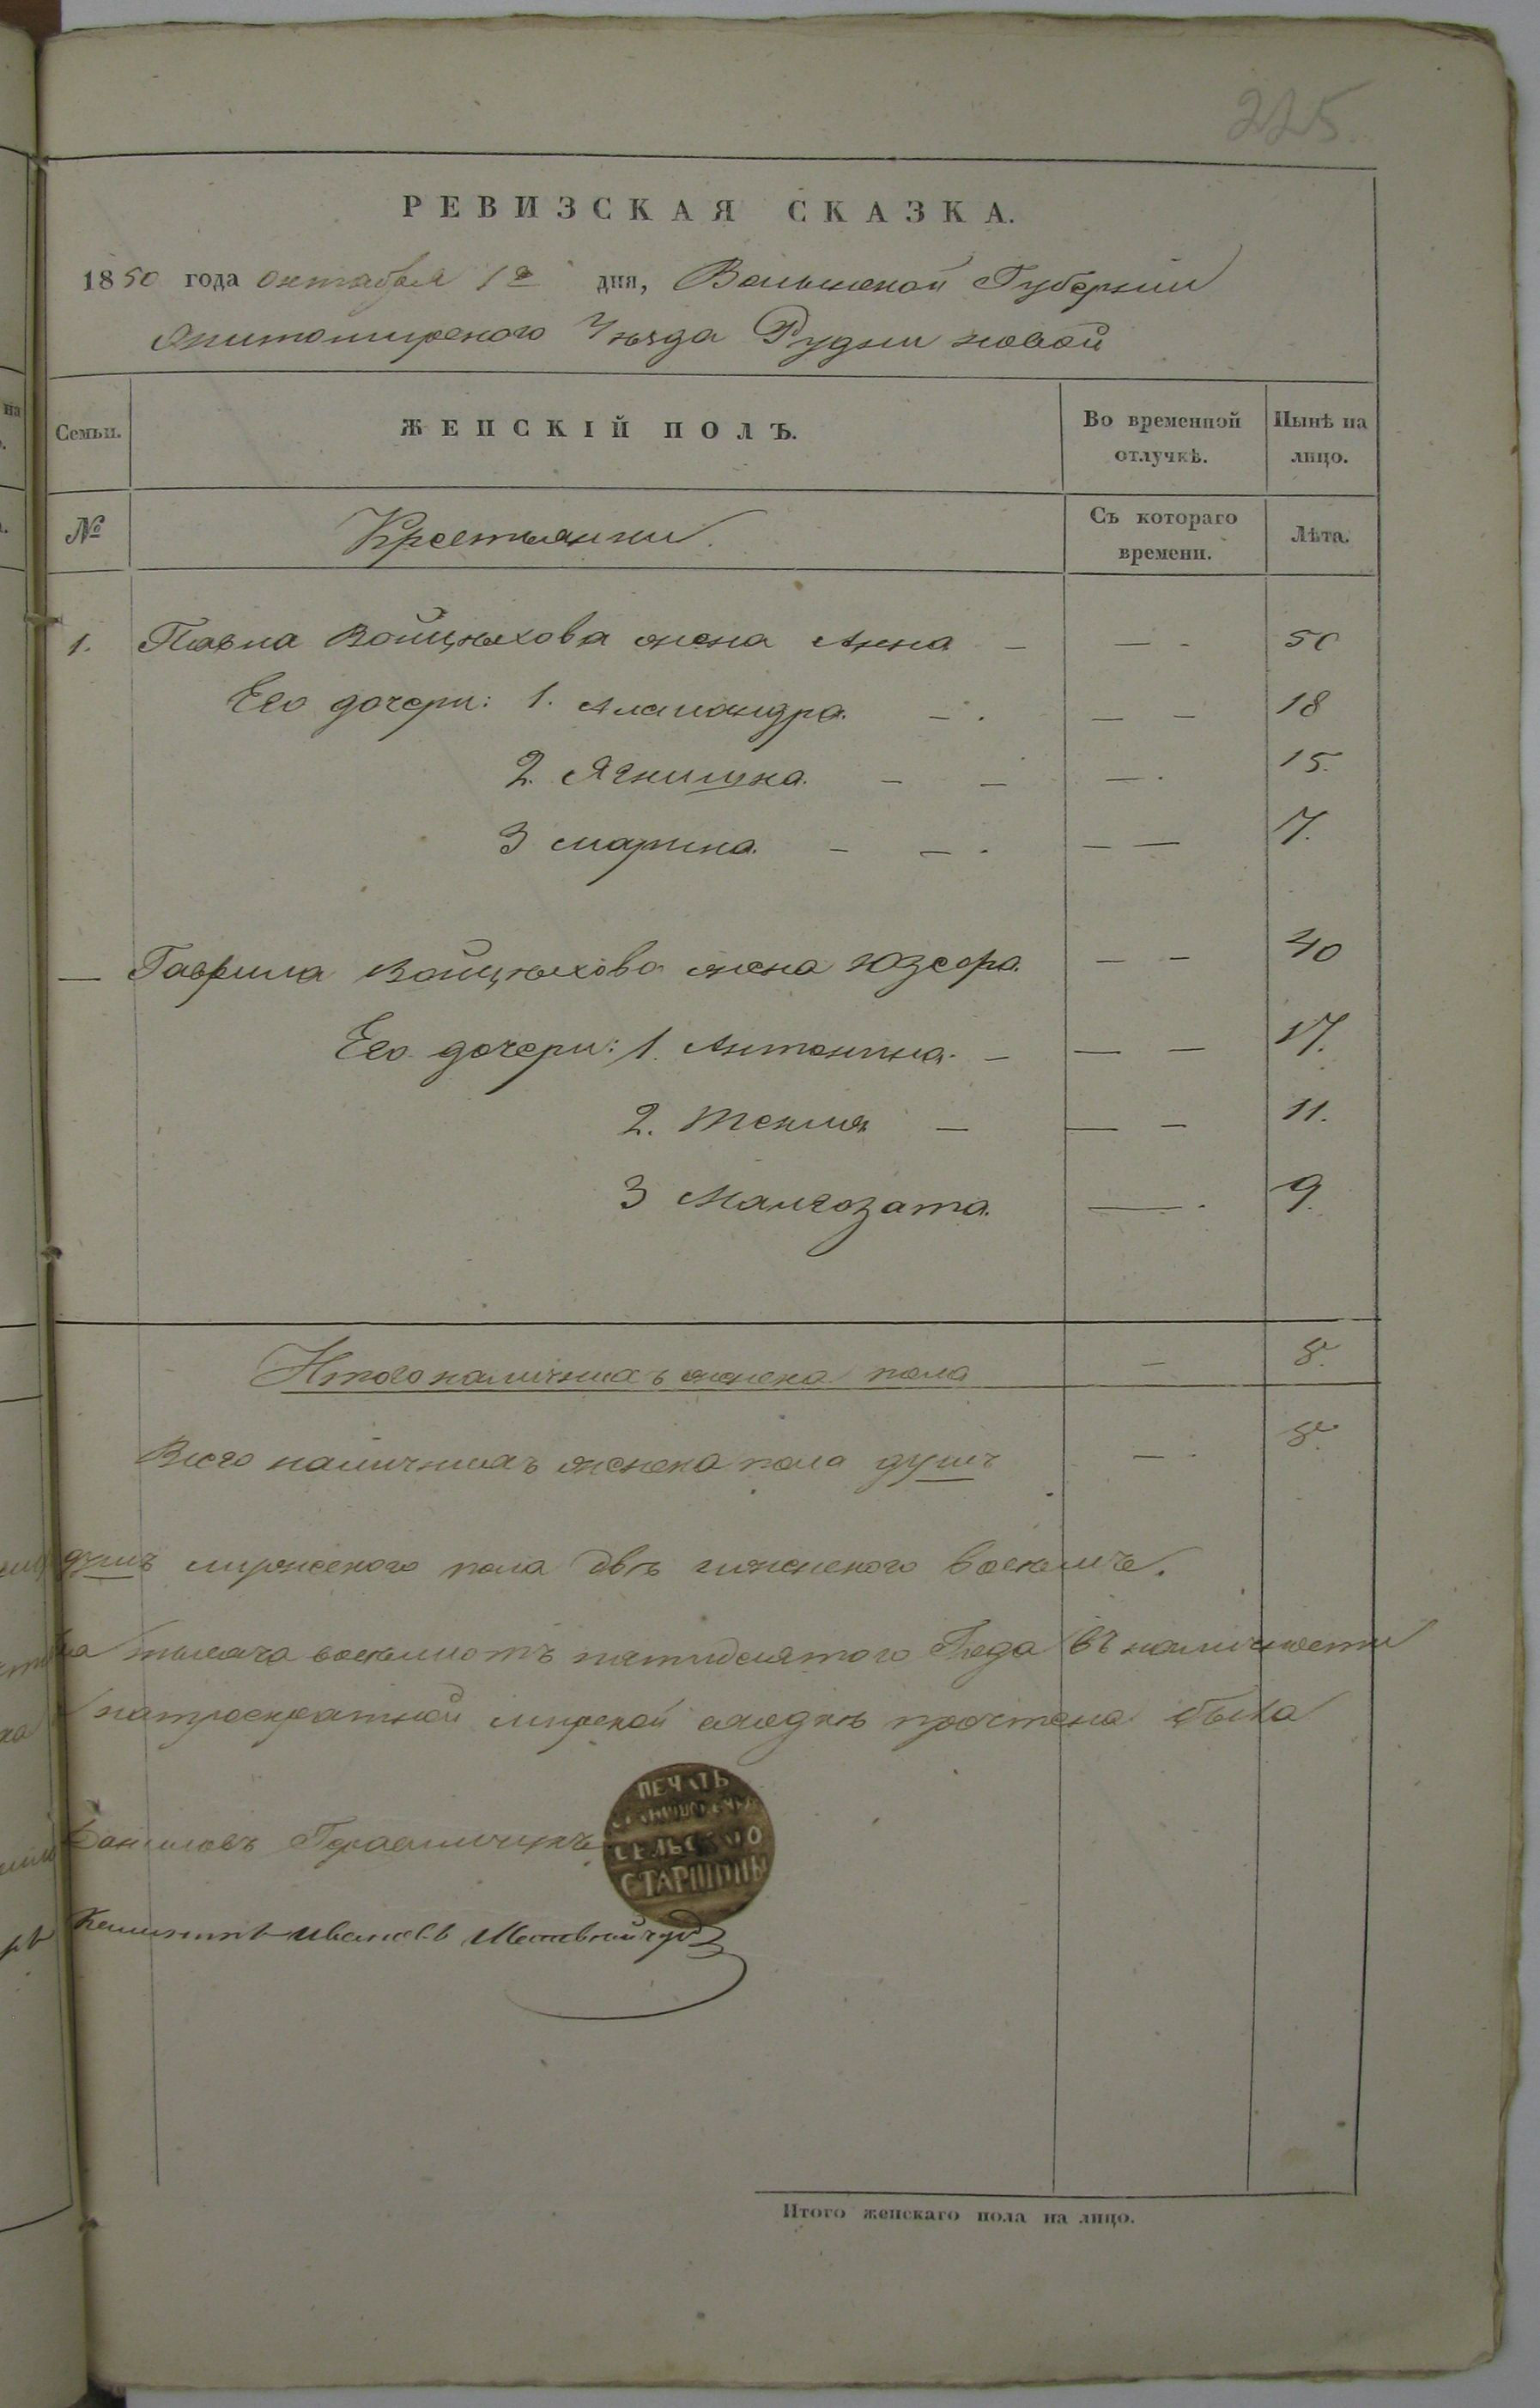 225.
РЕВИЗСКАЯ СКАЗКА.
1850 года октября 1го дня, Волынской Губернии
Житомирского Уѣзда Рудни новой
Семьи. ЖЕНСКІЙ ПОЛЪ. Во временной отлучкѣ. Нынѣ на лицо.
№ Крестьянки. Съ котораго времени. Лѣта.
1. Павла Войцѣхова жена Анна — — - 50
Его дочери: 1. Александра. — . — — 18
2. Ягнишка. — — — . 15.
3 марина. — — . — — 7.
— Гаврила Войцѣхова жена Юзефа. — — 40
Его дочери: 1. Антонина. — — — 17.
2. Текля — — — 11.
3 Малгозата. — . 9.
Итого наличныхъ женска пола — 8.
Всего наличныхъ женска пола душъ — . 8.
душъ мужеского пола двѣ женского восемь.
тысяча восемьсотъ пятидесятого Года въ наличности
мирской сходкѣ прочтена была
Даниловъ
ПЕЧАТЬ
СЕЛЬСКОГО
СТАРШИНЫ
Ивановъ
Итого женскаго пола на лицо.